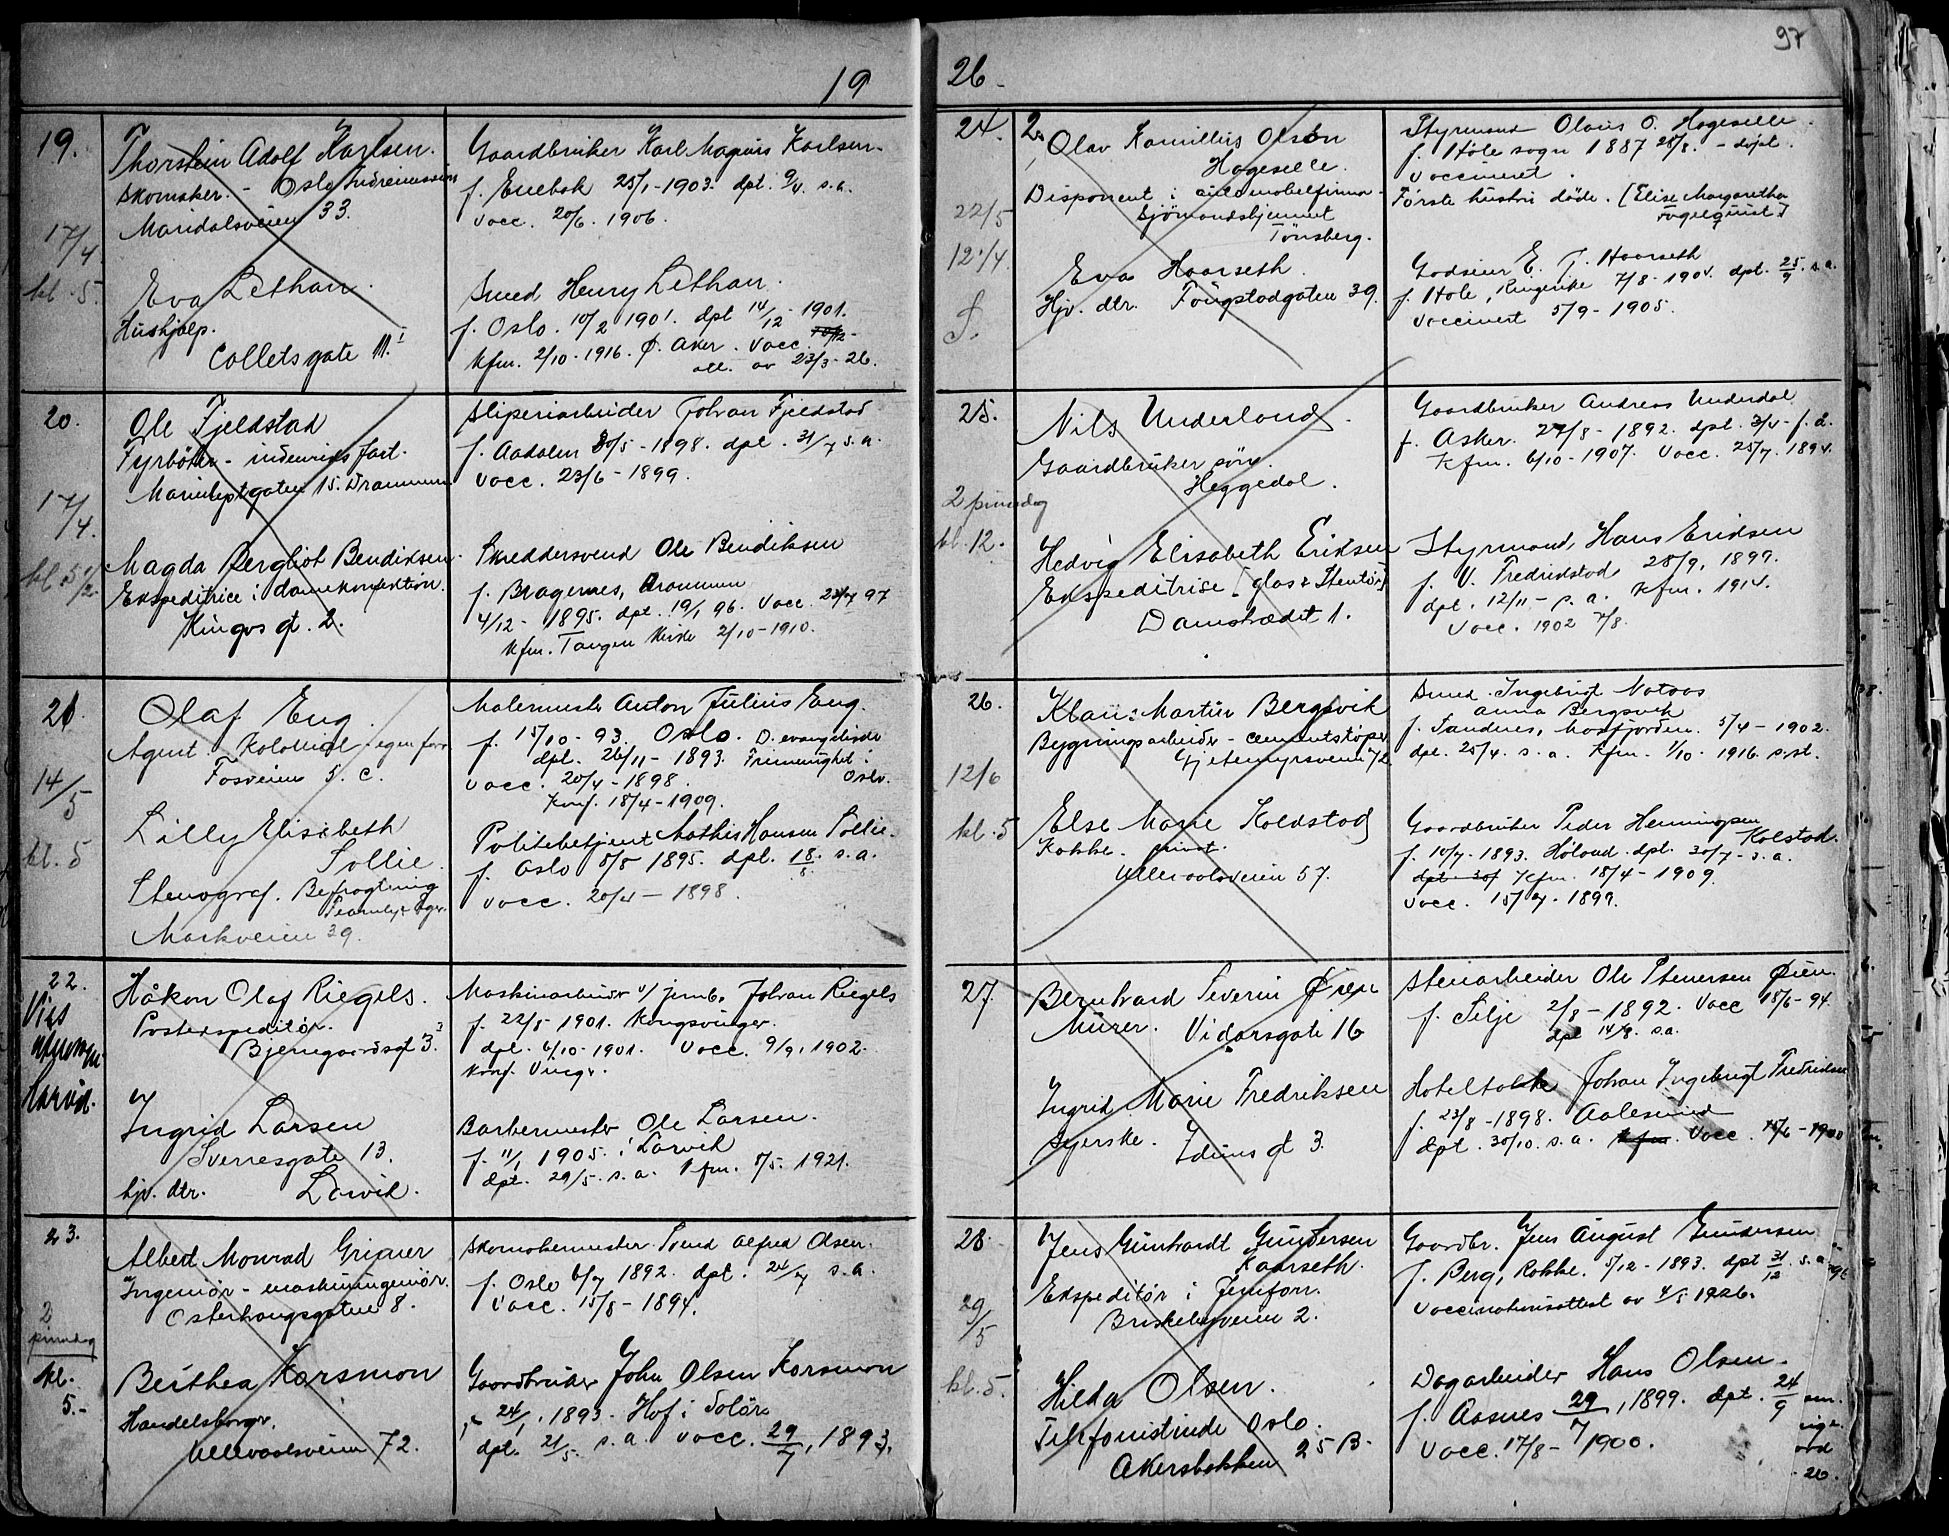 97
19
26.
19.
Thorstein Adolf Karlsen.
Skomaker. - Oslo Indremission
Maridalsveien 33.
17/4
kl. 5.
Eva Lethan.
Hushjelp.
Collets gate
Gaardbruker Karl Magnus Karlsen.
f. Enebak 25/1-1903. dpt. s.a.
Vacc. 20/6. 1906.
Smed Henry Lethan.
f. Oslo. 10/2 1901. dpt 14/12 - 1901.
Kfm. 2/10-1916. Ø. Aker. Vacc.
att. av 23/3-26.
20.
Ole Fjeldstad
Fyrböter - indenriks fart.
15. Drammen
17/4.
kl. 5 1/2
Magda Bergliot Bendiksen.
Ekspeditrice i damekonfektion.
Kingos gt. 2.
Sliperiarbeider Johan Fjeldstad
f. Aadalen 30/5-1898. dpt. 31/7 s.a.
Vacc. 23/6-1899.
Skreddersvend Ole Bendiksen
f. Bragernes, Drammen
4/12-1895. dpt. 19/1 96. Vacc. 97
Kfm. Tangen Kirke 2/10-1910.
21.
Olaf Eng.
Agent. Kolonial - egen forr.
Fosveien 5. c.
14/5
kl. 5
Lilly Elisabeth
Sollie.
Stenograf. Befragtning
Fearnley & Eger.
Markveien 39.
Malermester Anton Julius Eng.
f. 15/10-93. Oslo. D. evangeliske
dpt. 26/11-1893. Frimenighet i
Vacc. 20/4-1898. Oslo.
Konf. 18/4-1909.
Politibetjent Mathis Hansen Sollie.
f. Oslo 5/5 1895. dpt. 18/8. s.a.
Vacc. 20/4-1898.
22.
Vies
Larvik.
Håkon Olaf Riegels.
Postekspeditör.
Bjerregaardsgt 3.
Ingrid Larsen
Sverresgate 13.
hjv. dtr. Larvik.
Maskinarbeider v/ jernb. Johan Riegels
f. 22/5-1901. Kongsvinger.
dpt. 6/10-1901. Vacc. 9/9, 1902.
Konf. Vinger.
Barbermester Ole Larsen.
f. 11/1 1905. i Larvik
dpt. 29/5. s.a. Kfm. 5/5. 1921.
23.
Albert Monrad Griner
Ingeniör - maskiningeniör.
Osterhausgaten 8.
2
pinsedag
kl.
5.-
Berthea Korsmon
Handelsborger.
Ullevaalsveien 72.
Skomakermester Svend Alfred Olsen.
f. Oslo 6/7 1892. dpt. 24/7 s.a.
Vacc. 15/8-1894.
Gaardbruker John Olsen Korsmon
f. 24/1, 1893. Hof i Solör
dpt. 21/5. s.a. Vacc. 29/7, 1893.
24.
Olav Kamillius Olsen
Hageselle.
Disponent i automobilfirma -
Sjömandshjemmet
Tönsberg.
22/5
12 1/4
Eva Haarseth.
Hjv. dtr. Fougstadgaten 39.
Styrmand Olaus O. Hageselle.
f. Höle sogn 1887 28/8. - döpt.
Vaccineret.
Förste hustru döde. [Elise Margaretha
Fogelquist]
Godseier E. J. Haarseth
f. Hole, Ringerike 7/8-1904. dpt. 25/9. s.a.
Vaccinert 5/9-1905.
25.
Nils Underland.
Gaardbruker sön.
Heggedal.
2 pinsedag
kl. 12.
Hedvig Elisabeth Eriksen
Ekspeditrise [glas & Stentöi]
Damstrædet 1.
Gaardbruker Andreas Underdal
f. Asker. 27/8-1892. dpt. 3/4-f. å.
Kfm. 6/10-1907. Vacc. 25/7. 1894.
Styrmand, Hans Eriksen
f. V. Fredrikstad 28/9, 1899.
dpt. 12/11- s.a. Kfm. 1914.
Vacc. 1902 7/8.
26.
Klaus Martin Bergsvik
Bygningsarbeider - cementstöper
Gjetemyrsveien 72
12/6
kl. 5
Else Marie Koldstad
Kokke. privat.
Ullevaalsveien 57.
Smed. Ingebrigt
Anna Bergsvik
f. Sandnes, 5/4-1902.
dpt. 25/4. s.a. Kfm. 1/10-1916
Gaardbruker Peder Henningsen
Kolstad.
f. 10/7-1893. Höland. dpt. 30/7-s.a.
Kfm. 18/4-1909.
Vacc. 1899.
27.
Bernhard Severin Öien
Murer. Vidarsgate 16
Ingrid Marie Fredriksen
Syerske. Iduns gt 3.
Stenarbeider Ole Stenersen Öien.
f. Silje 2/8-1892. Vacc 18/6-94.
dpt 14/8. s.a.
Hoteltolk Johan Ingebrigt Fredriksen
f. 23/8-1898. Aalesund
dpt. 30/10. s.a. Kfm. Vacc. -1900
28.
Jens Gunhardt Gundersen
Kaarseth.
Ekspeditör i Jernforr.
Briskebyveien 2.
29/5
kl. 5.
Hilda Olsen.
Telefonistinde Oslo.
Akersbakken 25 B.
Gaardbr. Jens August Gundersen
f. Berg, Rokke. 5/12-1893. dpt 31/12 s.a.
Vaccinationsattest av 4/5 1926.
Dagarbeider Hans Olsen.
f. Aasnes 29/7, 1899. dpt. 24/9
Vacc. 17/8-1900.